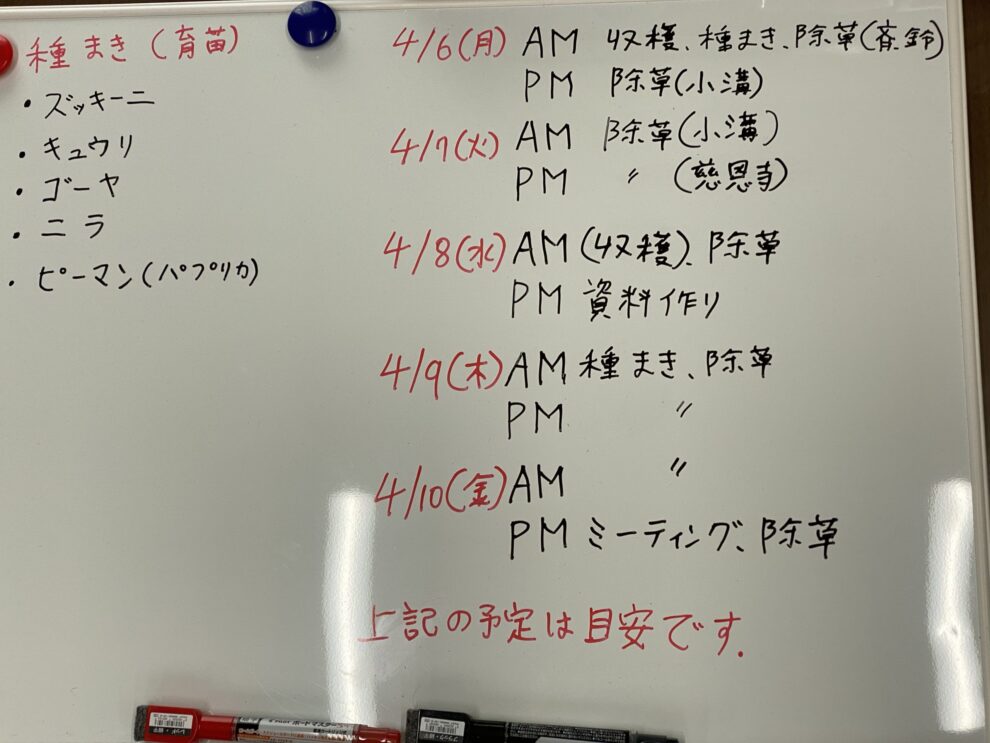 種まき(育苗)
・ズッキーニ
・キュウリ
・ゴーヤ
・ニラ
・ピーマン(パプリカ)
4/6(月) AM 収穫、種まき、除草(斉鈴)
PM 除草(小溝)
4/7(火) AM 除草(小溝)
PM 〃 (慈恩寺)
4/8(水) AM (収穫)、除草
PM 資料作り
4/9(木) AM 種まき、除草
PM 〃
4/10(金) AM 〃
PM ミーティング、除草
上記の予定は目安です.
ボードマスター